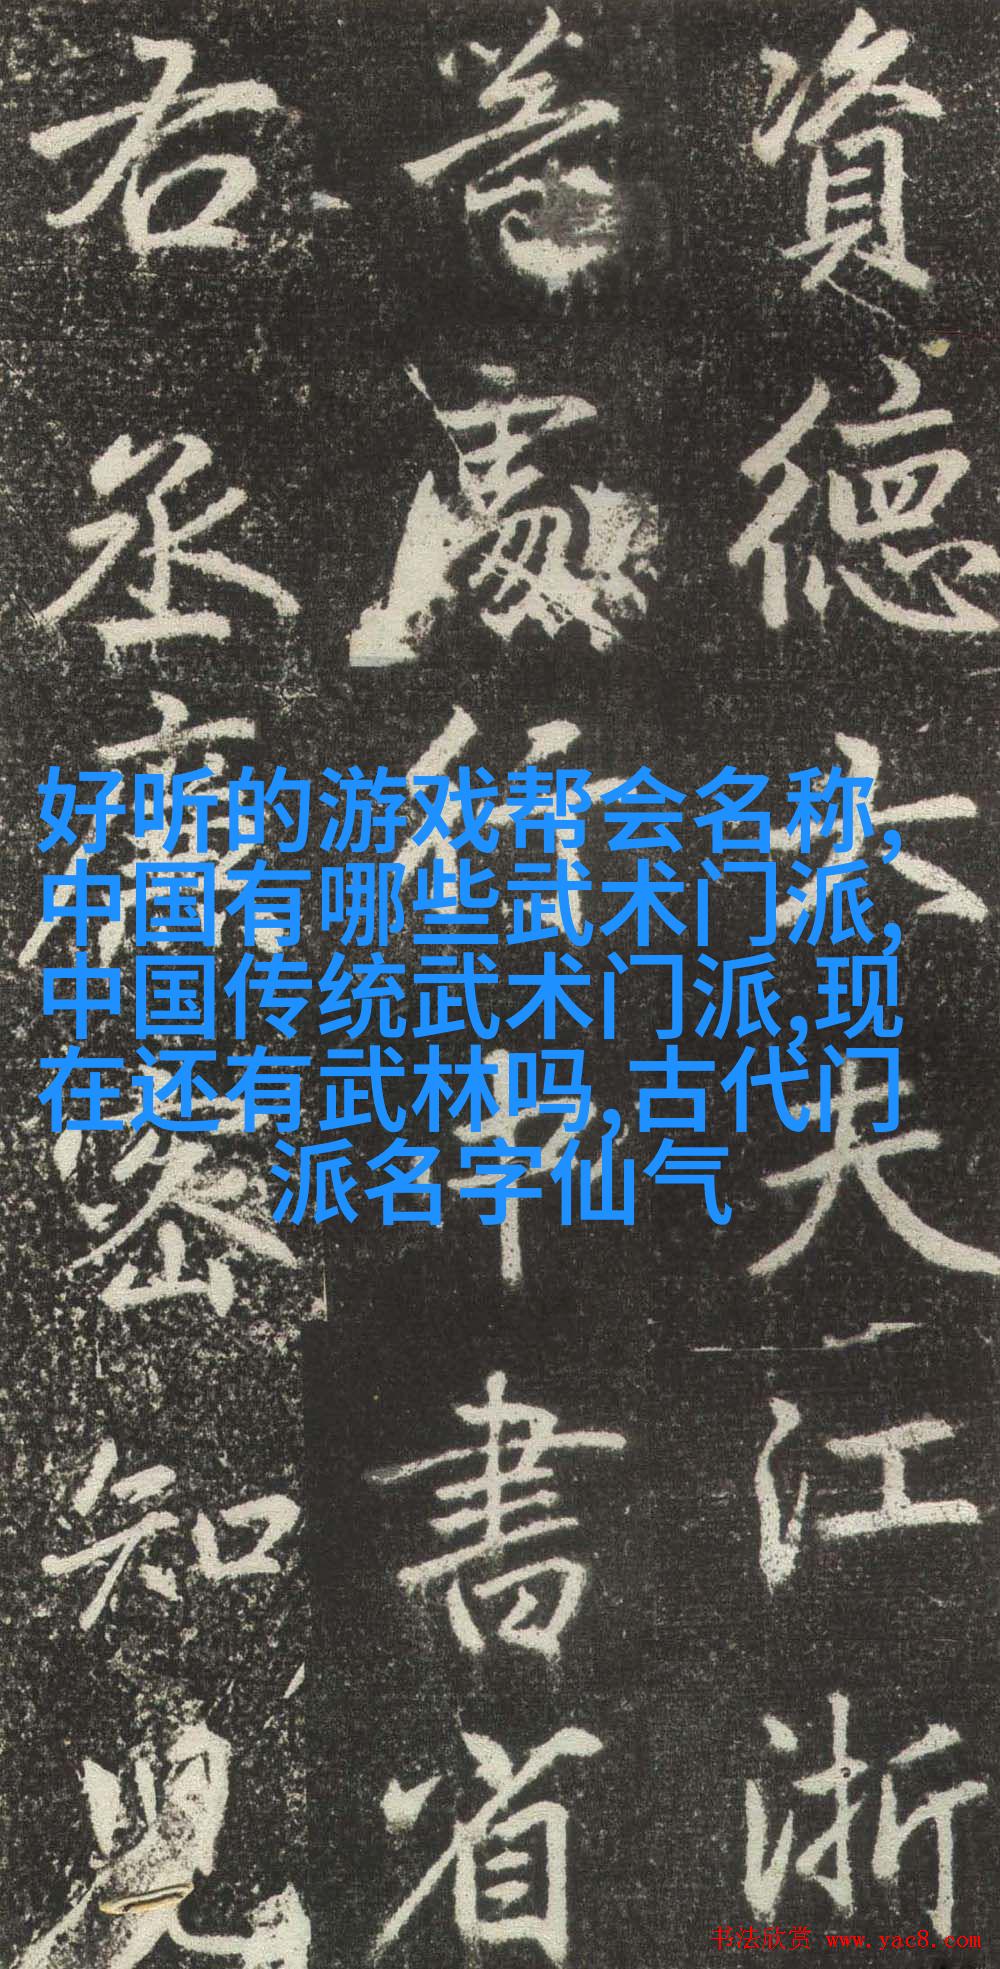 資德大夫江浙
等處行中書省
右丞廉密知兒
好听的游戏帮会名称,
中国有哪些武术门派,
中国传统武术门派,现
在还有武林吗,古代门
派名字仙气
书法欣赏 www.yac8.com